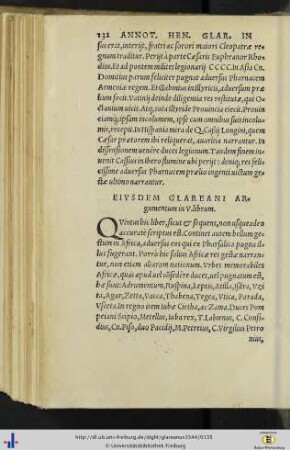 132 ANNOT. HEN. GLAR. IN
fuerat, interijt, fratri ac sorori maiori Cleopatræ re
gnum traditur. Perijt à parte Cæsaris Euphranor Rho
dius. Et ad pontem milites legionarij CCCC. In Asia Cn.
Domitius parum feliciter pugnat aduersus Pharnacem
Armeniæ regem. Et Gabinius in Illyricis, aduersum præ
lium fecit. Vatinij deinde diligentia res restituta, qui O-
ctauium uicit. Atq; tota Illyride Prouincia eiecit. Prouin
ciamq; ipsam incolumem, ipse cum omnibus suis incolu-
mis, recepit. In Hispania mira de Q. Cassij Longini, quem
Cæsar prætorem ibi reliquerat, auaritia narrantur. In
dissensionem uenere duces legionum. Tandem finem in-
uenit Cassius in Ibero flumine ubi perijt: deniq; res feli-
cissime aduersus Pharnacem prælio ingenti uictum ge-
stæ ultimo narrantur.
EIVSDEM GLAREANI AR-
gumentum in V. librum.
QVintus hic liber, sicut & sequens, non usqueadeo
accuratè scriptus est. Continet autem bellum ge-
stum in Africa, aduersus eos qui ex Pharsalica pugna di-
lapsi fugerant. Porrò hic solius Africæ res gestæ narran-
tur, non etiam aliarum nationum. Vrbes memorabiles
Africæ, quas apud uel obsidêre duces, uel pugnatum est,
hæ sunt: Adrumentum, Ruspina, Leptis, Acilla, Isra, Vzi
ta, Agar, Zetta, Vacca, Thabena, Tegea, Vtica, Parada,
Vsceta. In regno item Iubæ Cirtha, ac Zama. Duces Pom
peiani Scipio, Metellus, Iuba rex, T. Labienus, C. Consi-
dius, Cn. Piso, duo Pacidij, M. Petreius, C. Virgilius Petro
nius,
http://dl.ub.uni-freiburg.de/diglit/glareanus1544/0135
© Universitätsbibliothek Freiburg